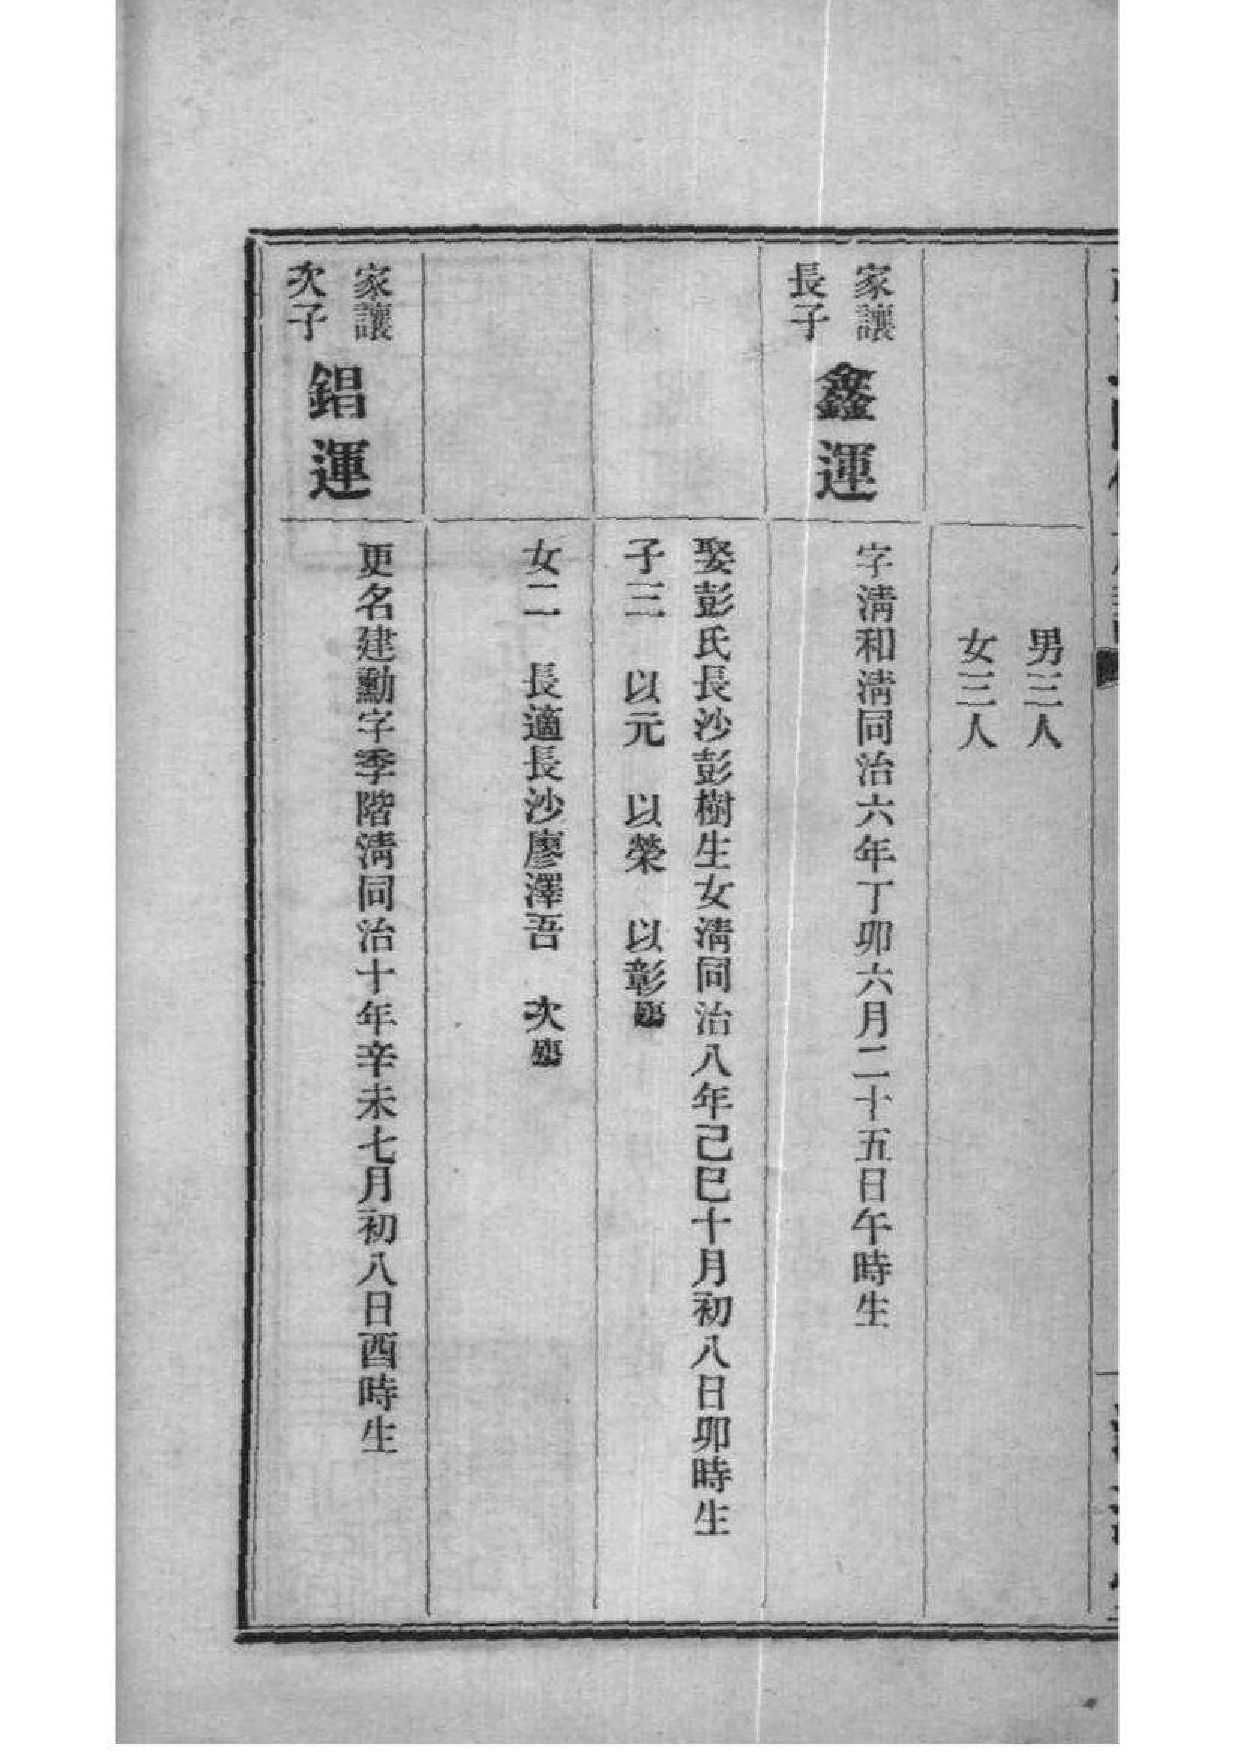 男三人
女三人
家讓
長子
鑫運
字淸和淸同治六年丁卯六月二十五日午時生
娶彭氏長沙彭樹生女淸同治八年己巳十月初八日卯時生
子三　以元　以榮　以彰
女二　長適長沙廖澤吾　次殤
家讓
次子
錩運
更名建勳字季階淸同治十年辛未七月初八日酉時生